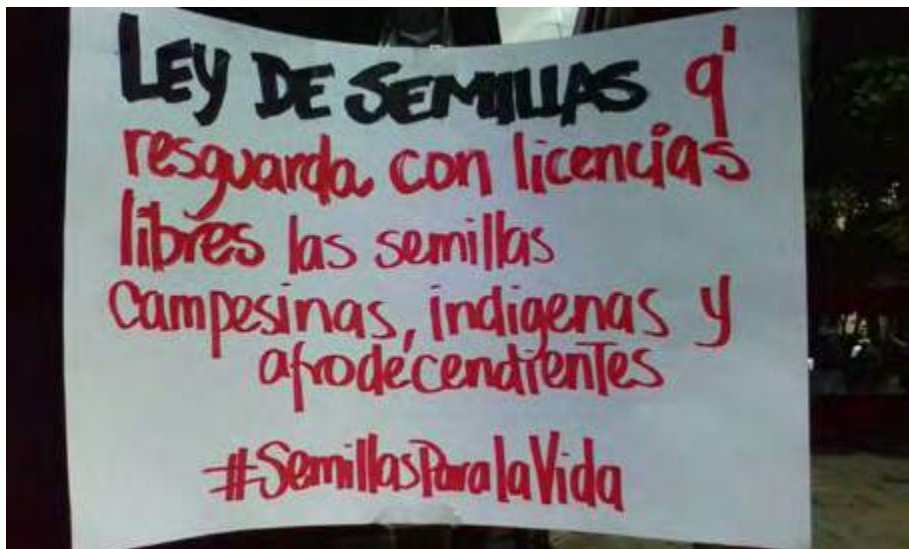 LEY DE SEMILLAS q'
resguarda con licencias
libres las semillas
campesinas, indigenas y
afrodecendientes
#SemillasParalaVida